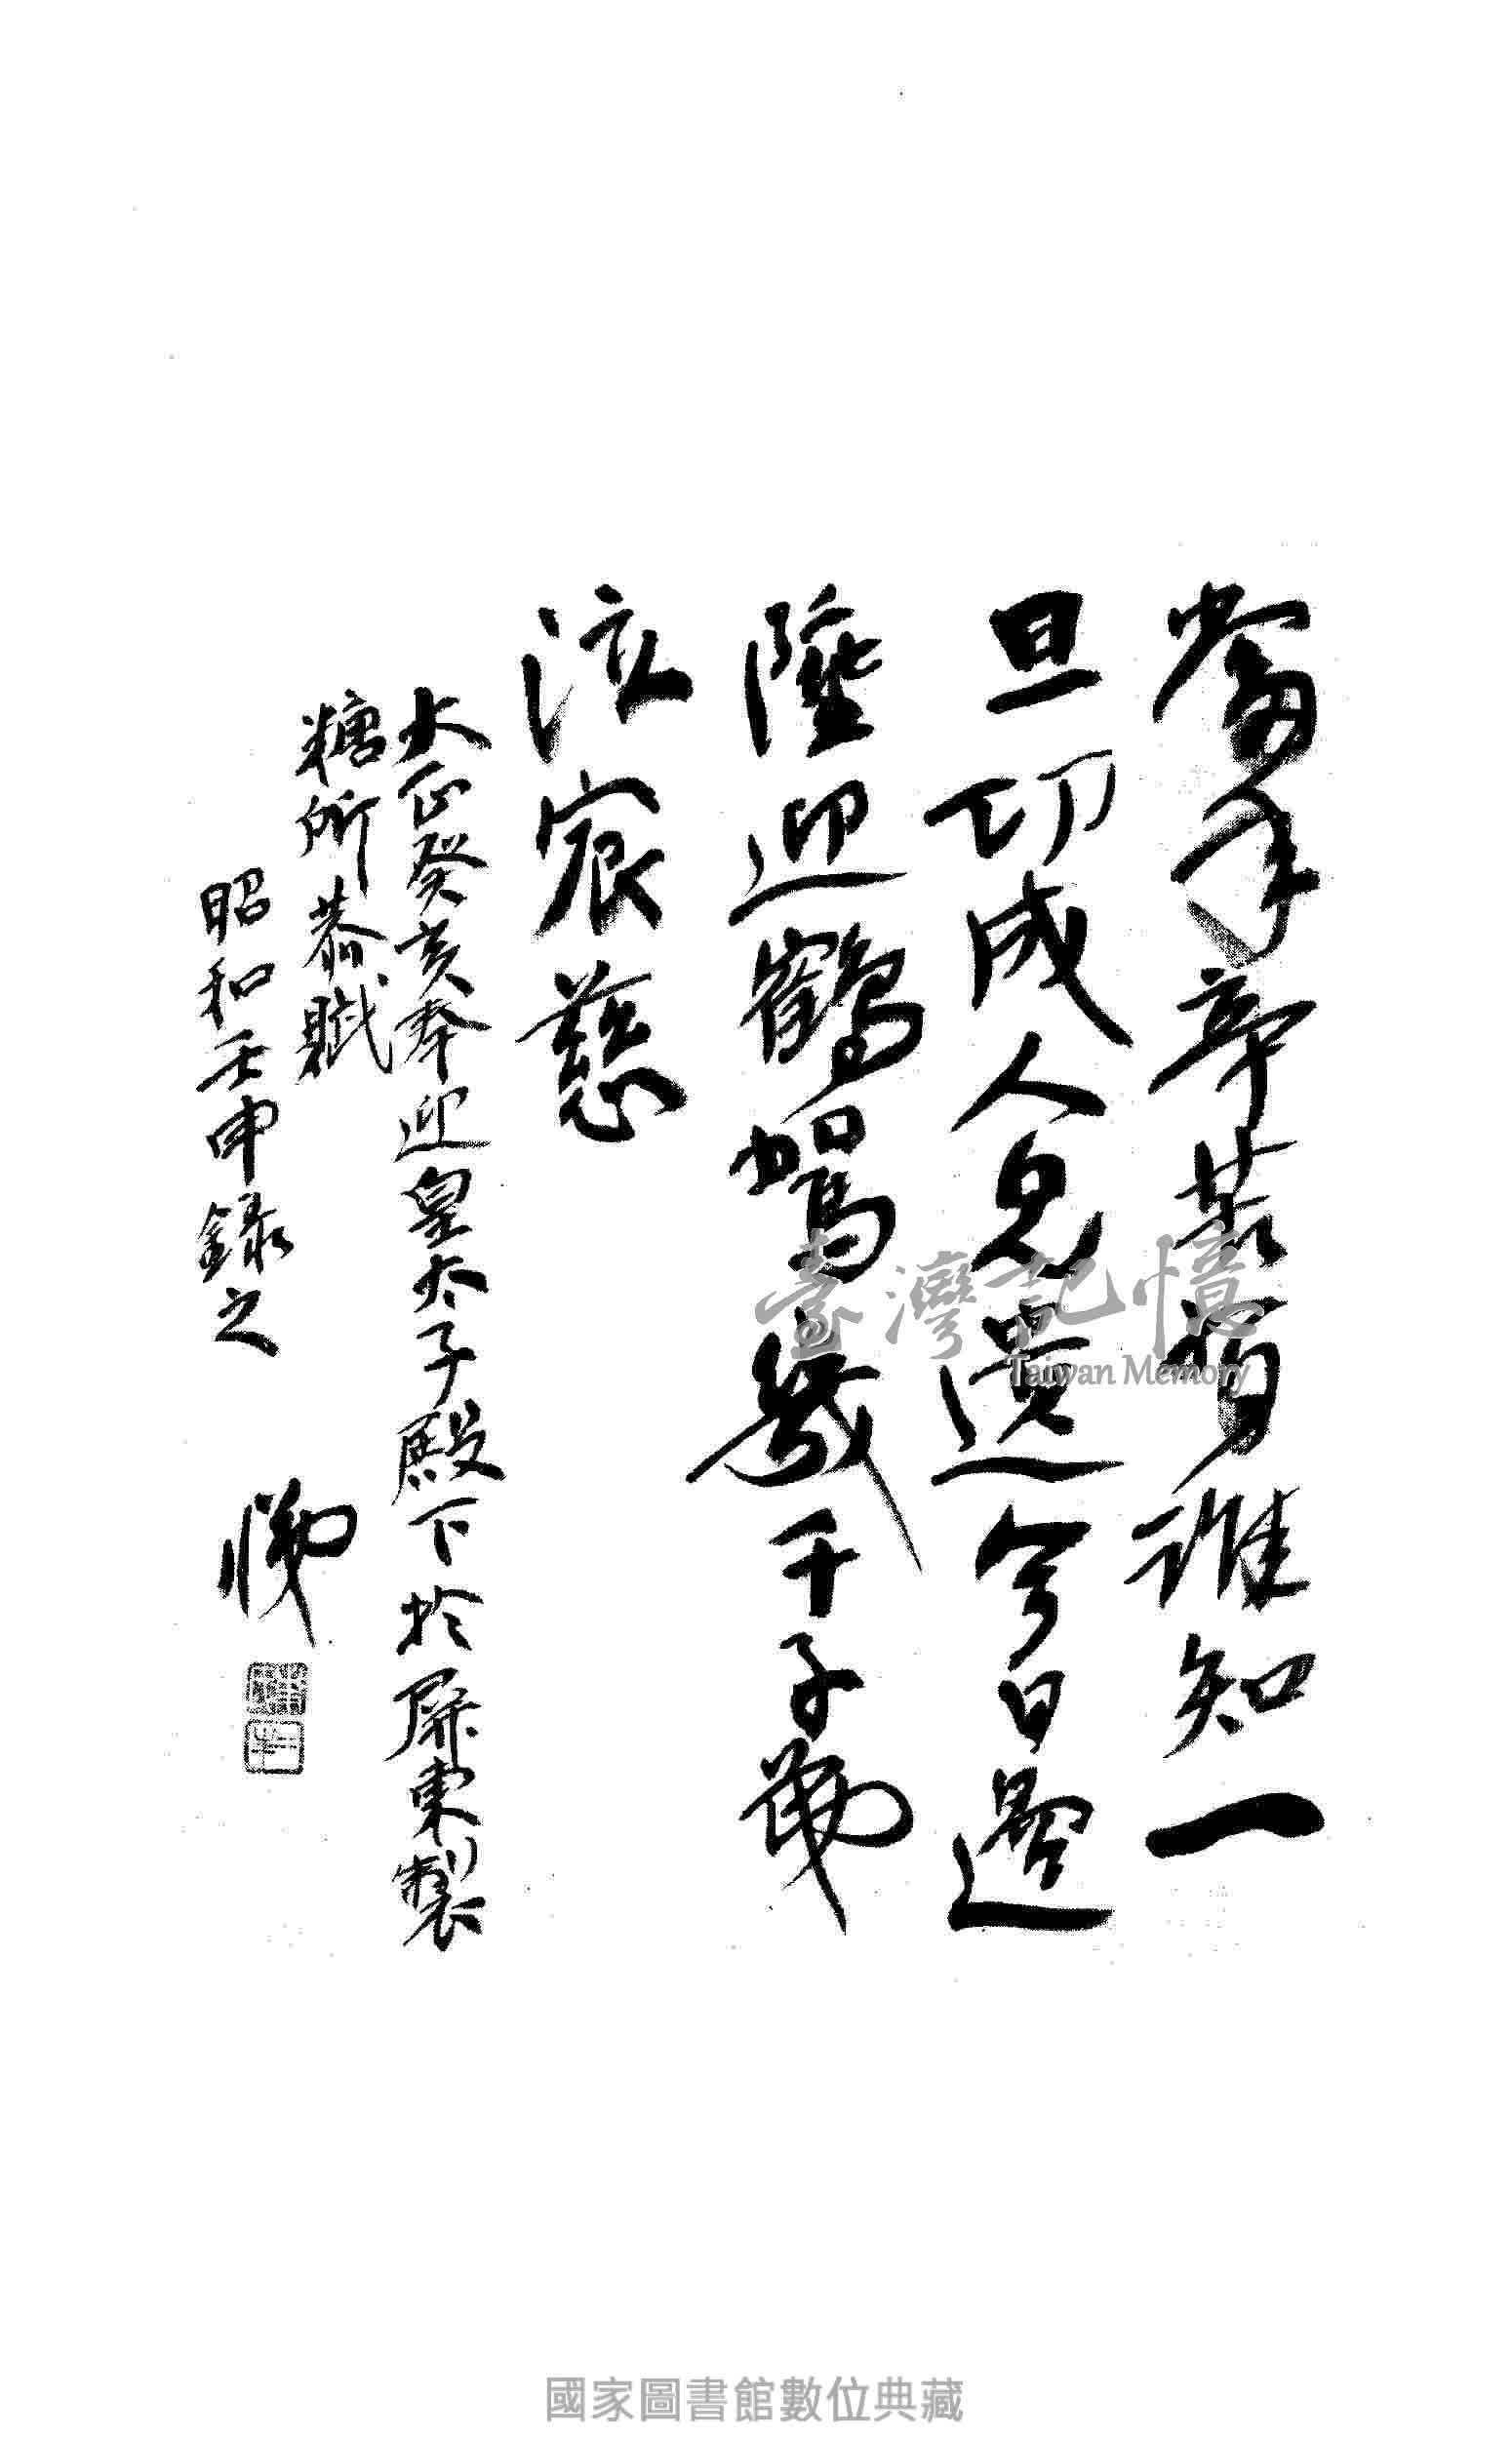 當年辛苦有誰知一
旦功成人忽遺今日還
陞迎鶴駕幾千子弟
泣宸慈
大正癸亥奉迎皇太子殿下於屏東製
糖所恭賦
昭和壬申錄之
臺灣記憶
Taiwan Memory
國家圖書館數位典藏